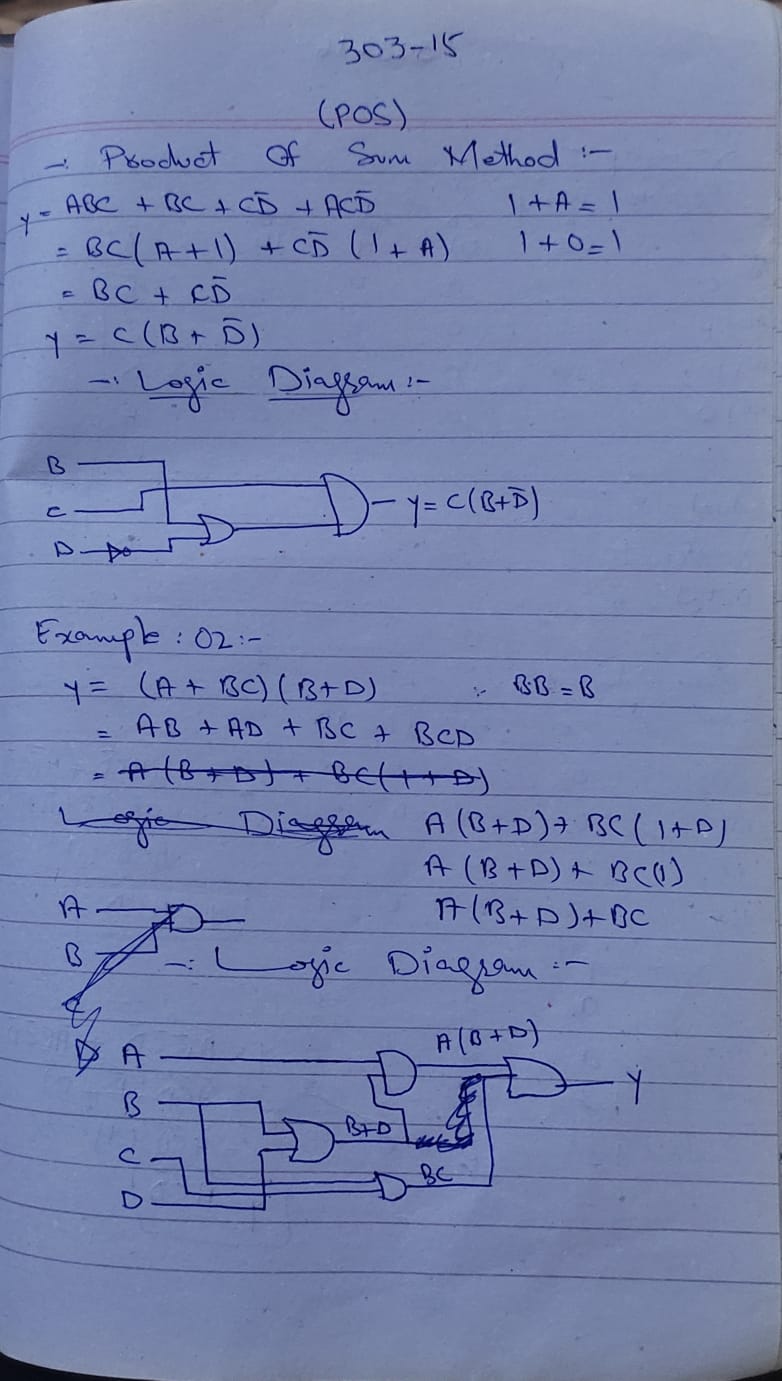 303-15
(POS)
→: Product Of Sum Method :-
y = ABC + BC + CD̄ + ACD̄    1 + A = 1
= BC(A+1) + CD̄ (1 + A)    1 + 0 = 1
= BC + CD̄
y = C(B + D̄)
→: Logic Diagram :-
B
C    y = C(B+D̄)
D
Example : 02 :-
y = (A + BC) (B+D)    ∴ BB = B
= AB + AD + BC + BCD
= A(B + D) + BC(1+D)
Logic Diagram    A(B+D) + BC(1+D)
A(B+D) + BC(1)
A    A(B+D)+BC
B    →: Logic Diagram :-
C
D
A    A(B+D)
Y
B
B+D
C
BC
D